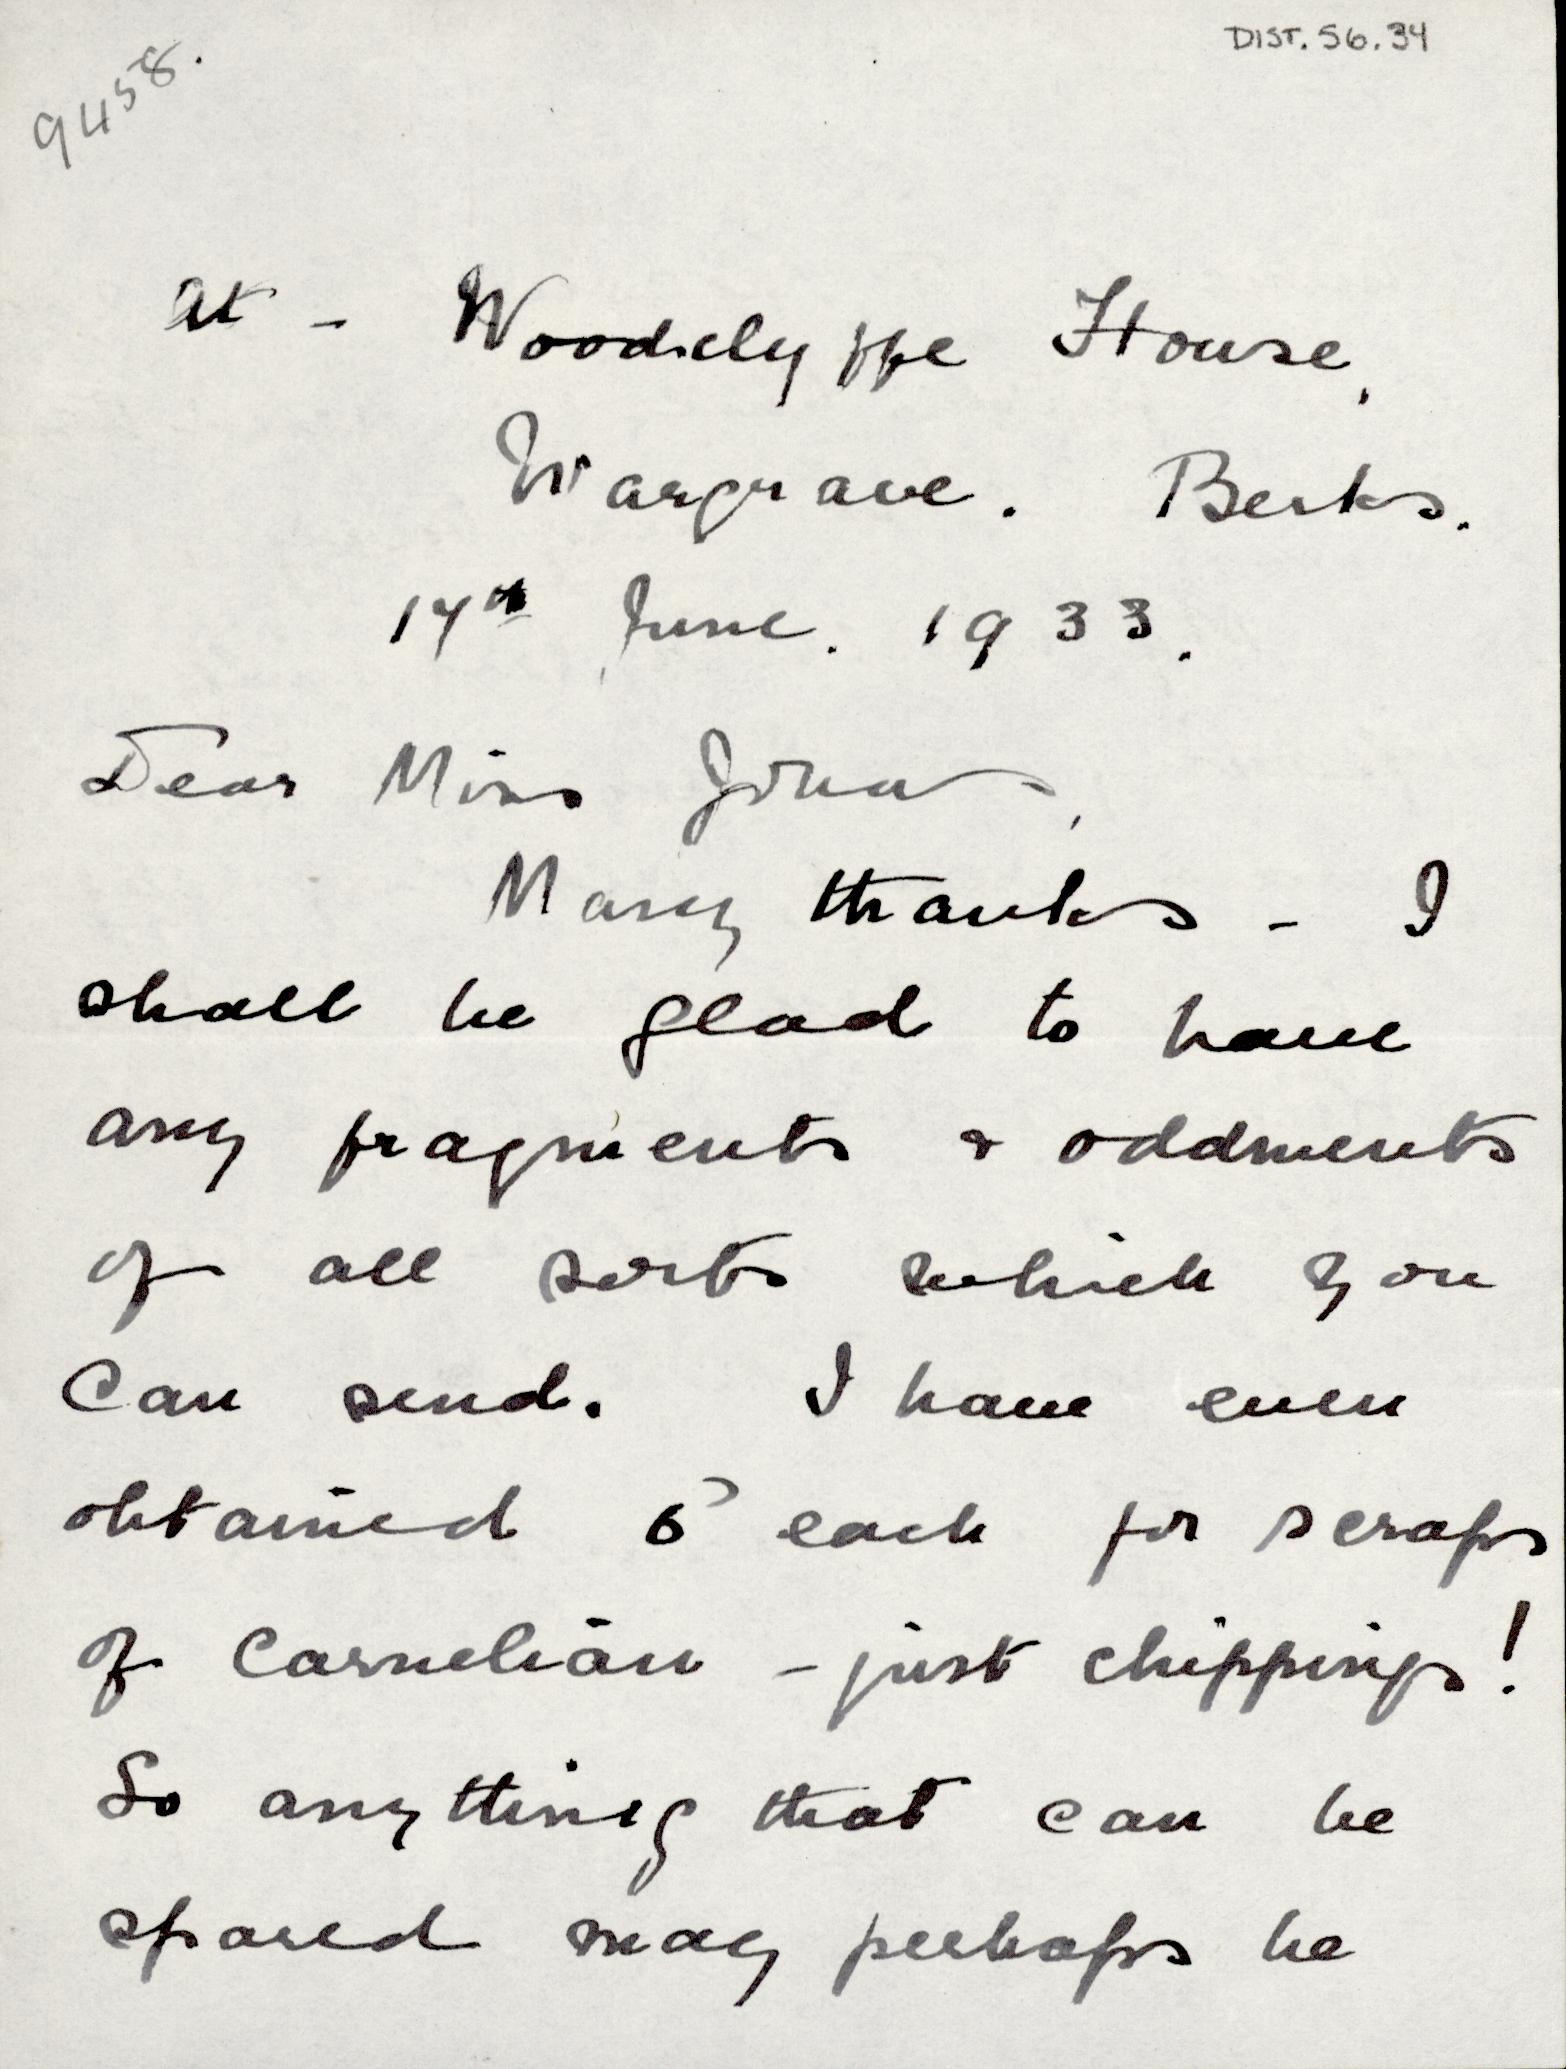 9458.
DIST. 56.34
at - Woodclyffe House,
Wargrave. Berks.
17th June. 1933.
Dear Miss Jonas,
Many thanks - I
shall be glad to have
any fragments & oddments
of all sorts which you
can send. I have even
obtained 6d each for scraps
of carnelian - just chippings!
So anything that can be
spared may perhaps be